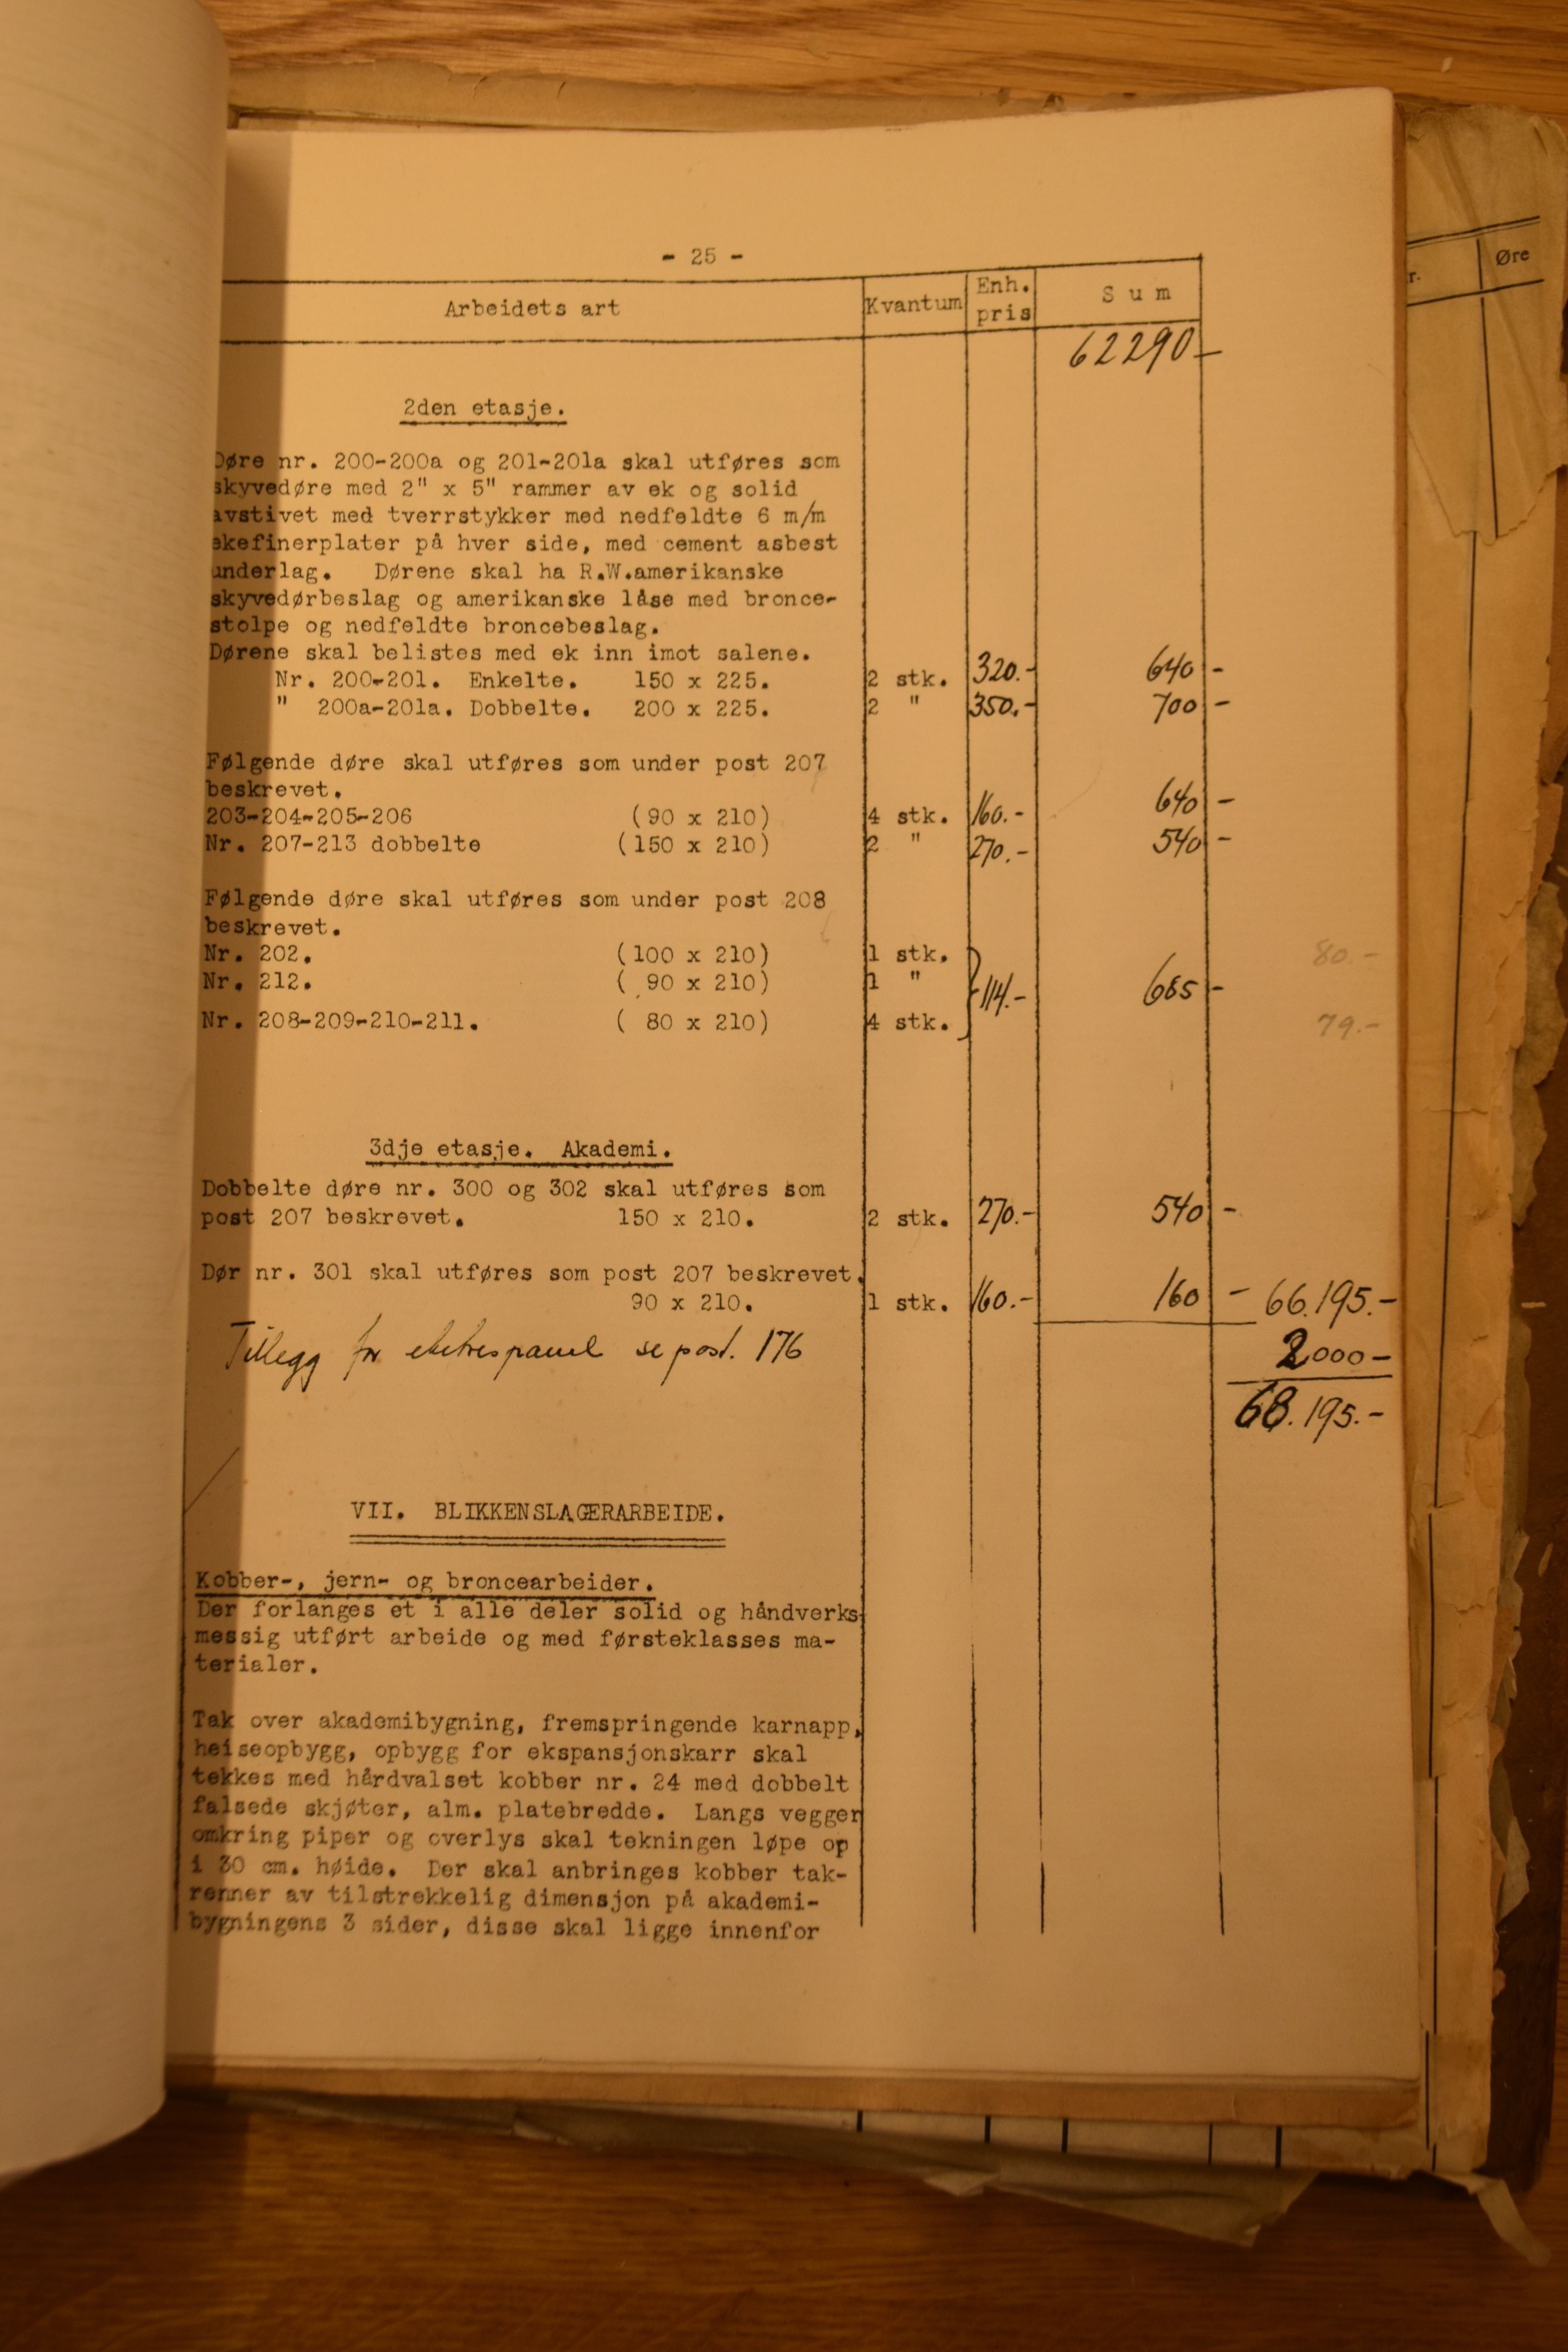 - 25 -
Arbeidets art Kvantum Enh. pris Sum
r. Øre
62290-
2den etasje.
Døre nr. 200-200a og 201-201a skal utføres som
skyvedøre med 2" x 5" rammer av ek og solid
avstivet med tverrstykker med nedfeldte 6 m/m
ekefinerplater på hver side, med cement asbest
underlag. Dørene skal ha R.W.amerikanske
skyvedørbeslag og amerikanske låse med bronce-
stolpe og nedfeldte broncebeslag.
Dørene skal belistes med ek inn imot salene.
Nr. 200-201. Enkelte. 150 x 225. 2 stk. 320.- 640 -
" 200a-201a. Dobbelte. 200 x 225. 2 " 350.- 700 -
Følgende døre skal utføres som under post 207
beskrevet.
203-204-205-206 (90 x 210) 4 stk. 160.- 640 -
Nr. 207-213 dobbelte (150 x 210) 2 " 270.- 540 -
Følgende døre skal utføres som under post 208
beskrevet.
Nr. 202. (100 x 210) 1 stk. 80.-
Nr. 212. ( 90 x 210) 1 " 114.- 685 -
Nr. 208-209-210-211. ( 80 x 210) 4 stk. 79.-
3dje etasje. Akademi.
Dobbelte døre nr. 300 og 302 skal utføres som
post 207 beskrevet. 150 x 210. 2 stk. 270.- 540 -
Dør nr. 301 skal utføres som post 207 beskrevet.
90 x 210. 1 stk. 160.- 160 - 66.195.-
Tillegg for se post. 176 2000-
68.195.-
VII. BLIKKENSLAGERARBEIDE.
Kobber-, jern- og broncearbeider.
Der forlanges et i alle deler solid og håndverks-
messig utført arbeide og med førsteklasses ma-
terialer.
Tak over akademibygning, fremspringende karnapp,
heiseopbygg, opbygg for ekspansjonskarr skal
tekkes med hårdvalset kobber nr. 24 med dobbelt
falsede skjøter, alm. platebredde. Langs vegger
omkring piper og overlys skal tekningen løpe op
i 30 cm. høide. Der skal anbringes kobber tak-
renner av tilstrekkelig dimensjon på akademi-
bygningens 3 sider, disse skal ligge innenfor